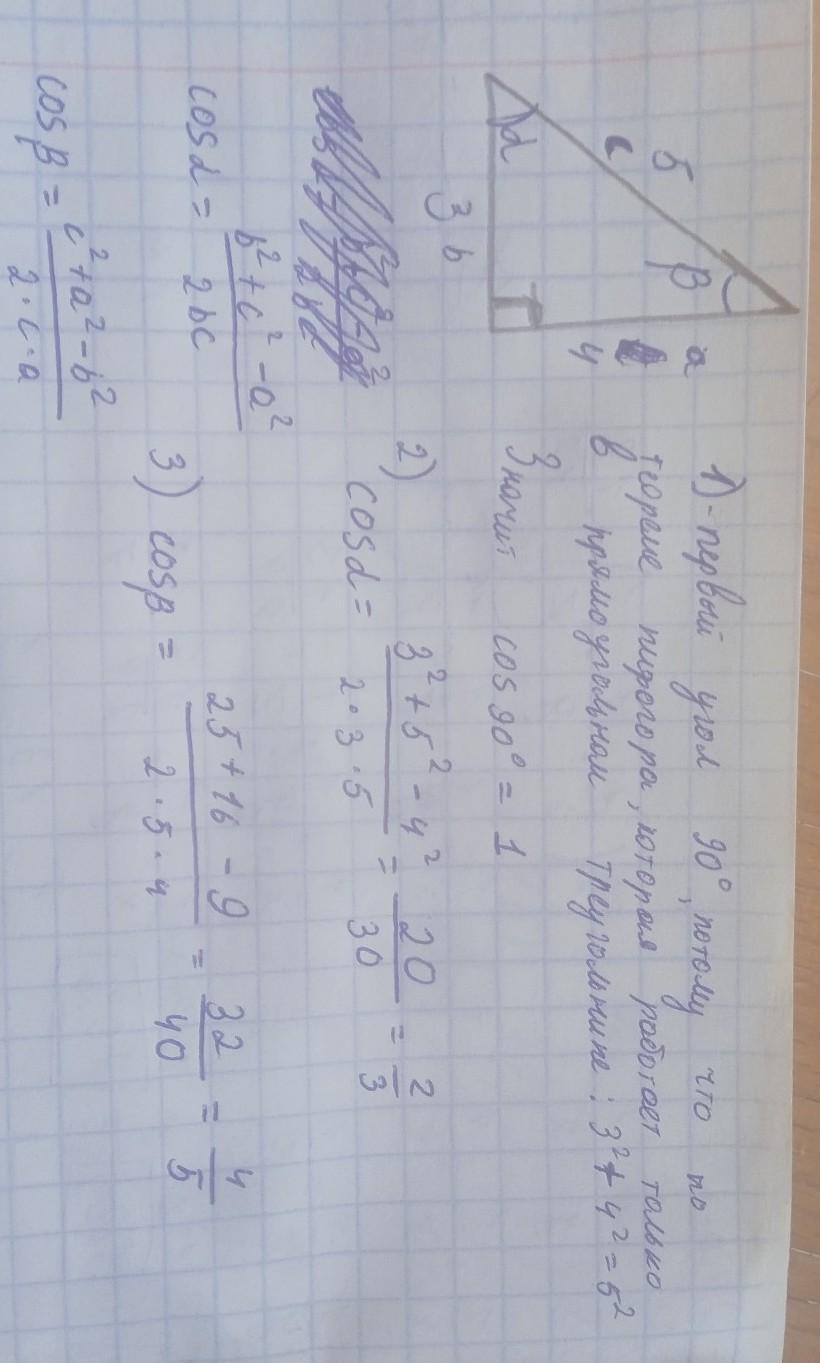 5
c
α
β
3 b
4
a
1) - первый угол 90°, потому что по
теореме пифагора, которая работает только
в прямоугольном треугольнике: 3² + 4² = 5²
Значит cos 90° = 1
cos α = b² + c² - a² / 2bc
cos β = c² + a² - b² / 2·c·a
2) cos α = 3² + 5² - 4² / 2·3·5 = 20 / 30 = 2 / 3
3) cos β = 25 + 16 - 9 / 2·5·4 = 32 / 40 = 4 / 5